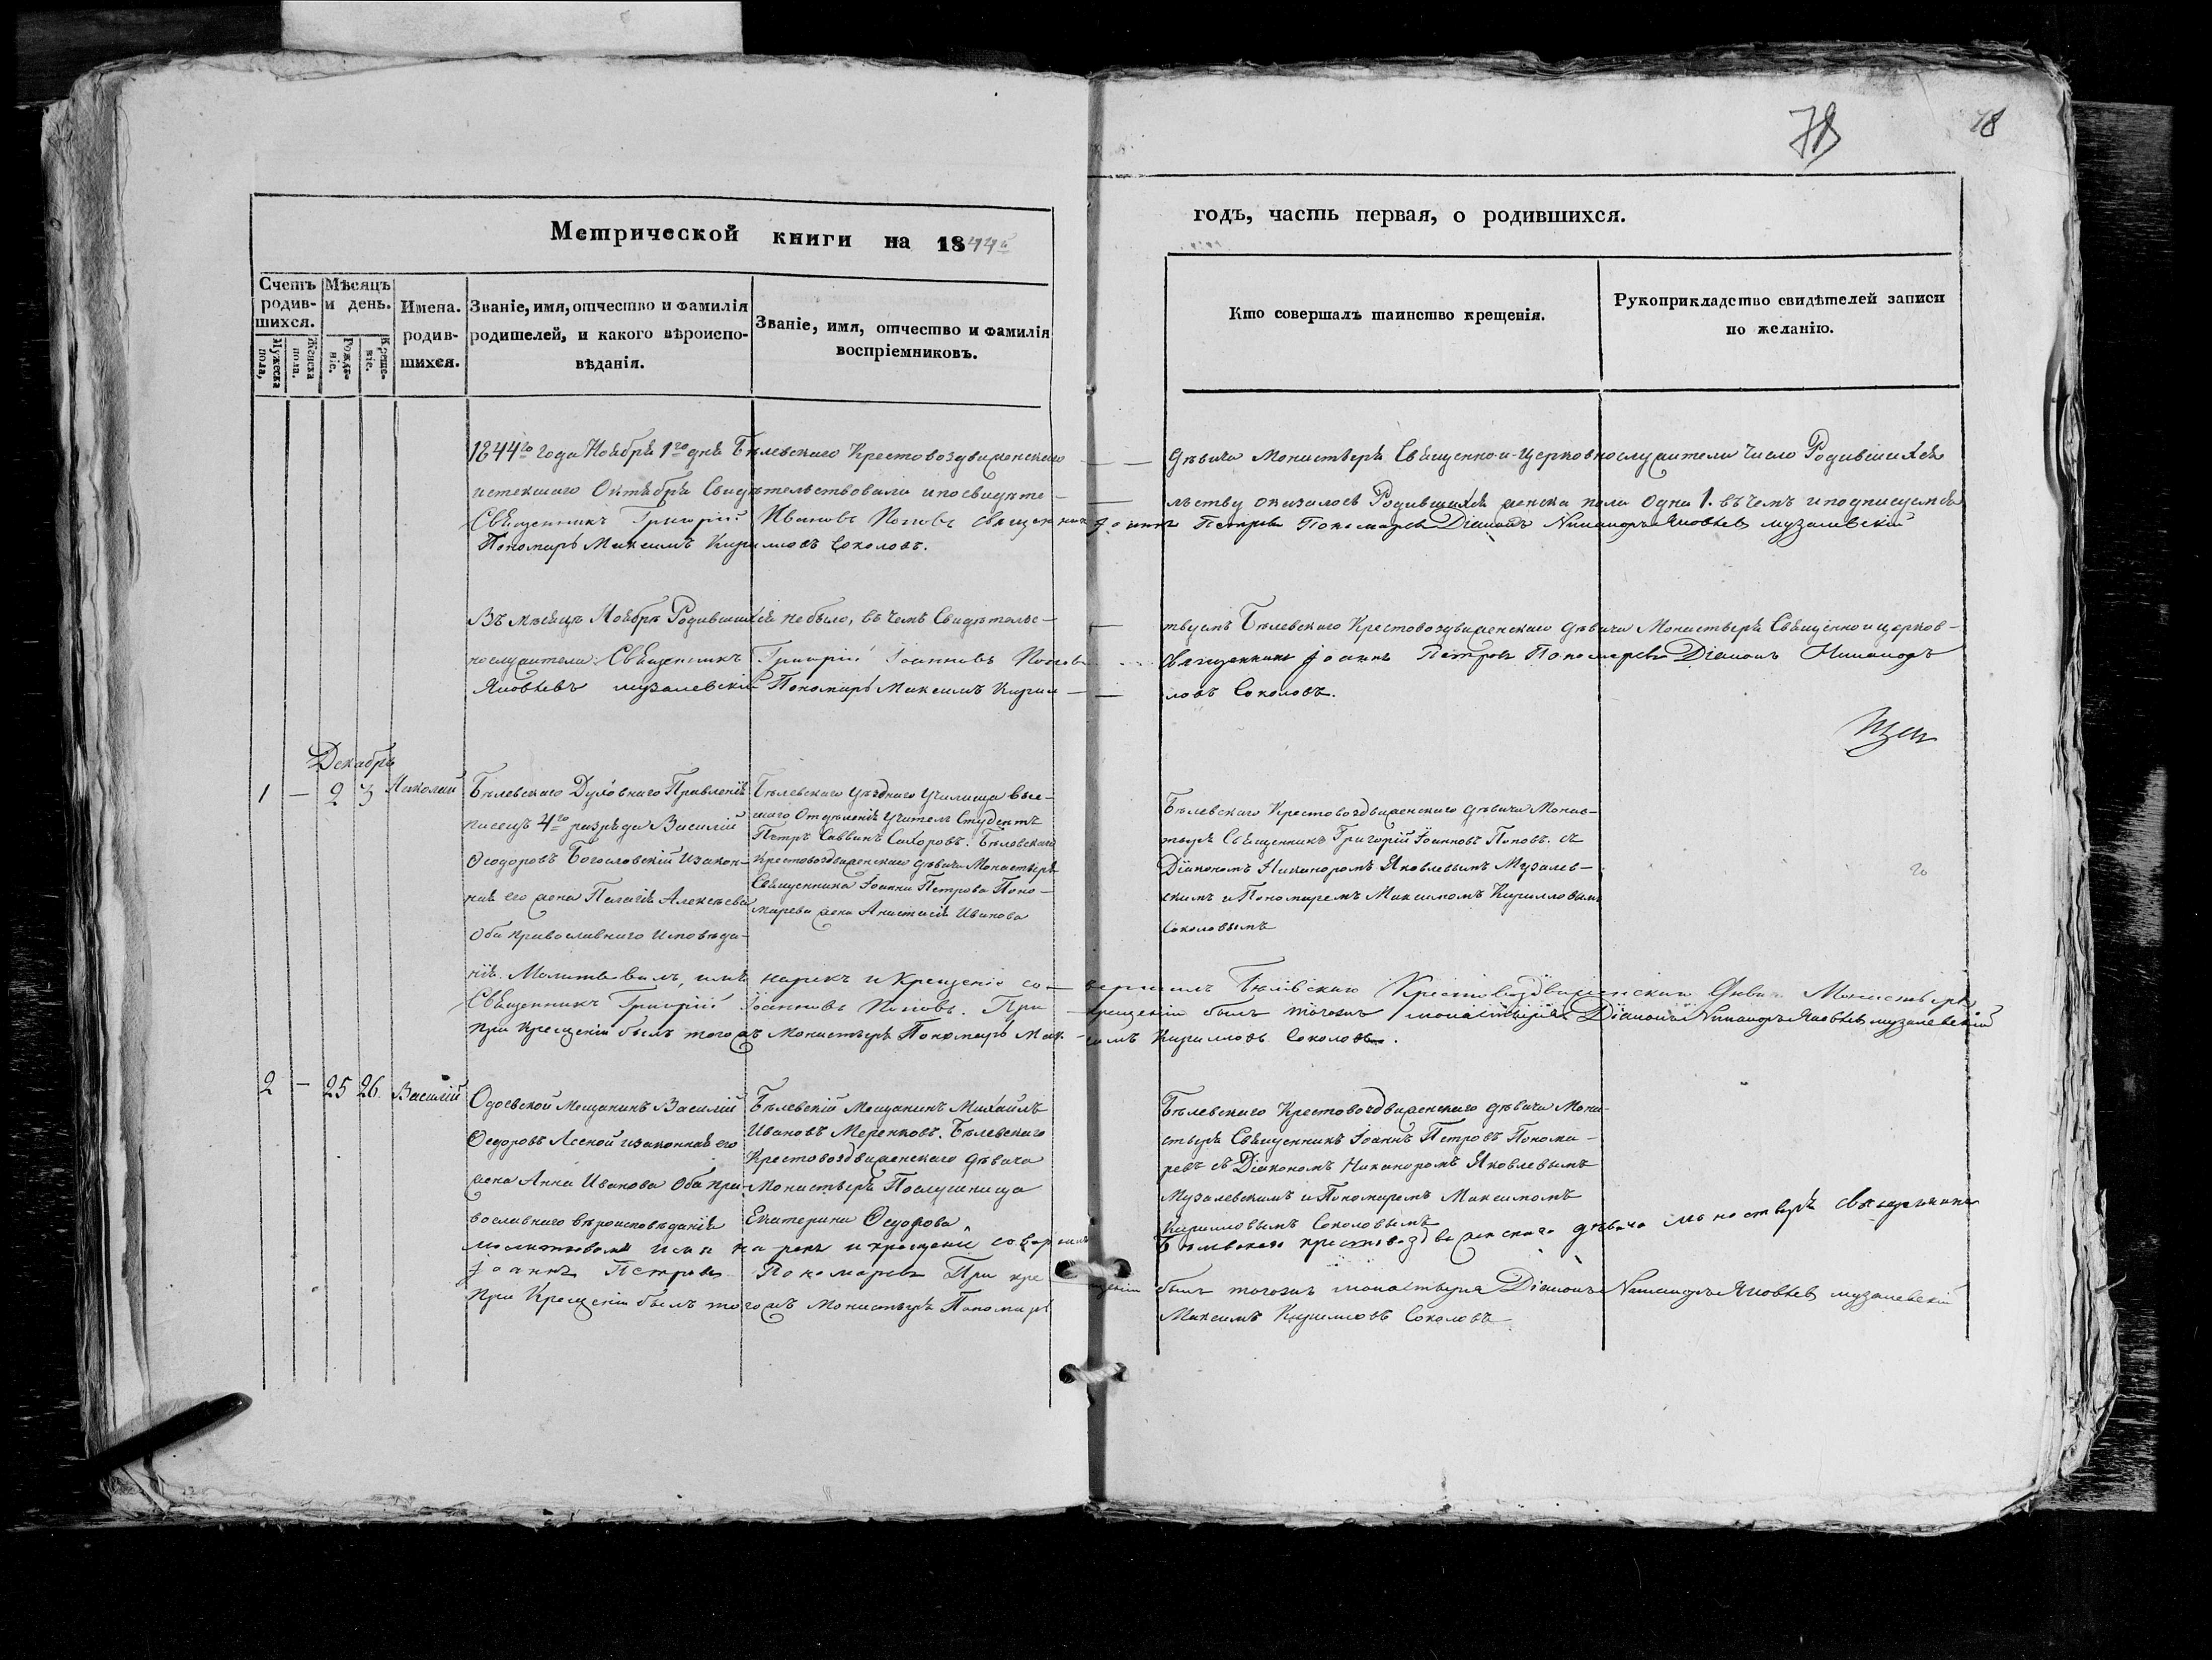 78
78
Метрической книги на 1844й
годъ, часть первая, о родившихся.
Счетъ родив-шихся.
Мужеска пола,
Женска пола.
Мѣсяцъ и день.
Рожде-ніе.
Креще-ніе.
Имена. родив-шихся.
Званіе, имя, отчество и фамилія родителей, и какого вѣроиспо-вѣданія.
Званіе, имя, отчество и фамилія воспріемниковъ.
Кто совершалъ таинство крещенія.
Рукоприкладство свидѣтелей записи по желанію.
1844го года Ноября 1го дня Бѣлевскаго Крестовоздвиженскаго — дѣвича Монастыря Священно-и-Церковнослужители число Родившихся
истекшаго Октября Свидѣтельствовали и по свидѣте— льству оказалось Родившихся женска пола одна 1. въ чемъ и подписуемся
Священникъ Григорій Ивановъ Поповъ Священникъ Іоаннъ Петровъ Пономаревъ Діаконъ Никаноръ Яковлевъ Музалевскій
Пономарь Максимъ Кирилловъ Соколовъ.
Въ мѣсяцѣ Ноябрѣ Родившихся не было, въ чемъ Свидѣтельс— твуемъ Бѣлевскаго Крестовоздвиженскаго дѣвича Монастыря Священно и церков-
нослужители: Священникъ Григорій Іоанновъ Поповъ Священникъ Іоаннъ Петровъ Пономаревъ Діаконъ Никаноръ
Яковлевъ Музалевскій Пономарь Максимъ Кирил— ловъ Соколовъ.
Декабрь
1 — 2 3 Николай
Бѣлевскаго Духовнаго Правленія
писецъ 4го разряда Василій
Ѳеодоровъ Богословскій и закон-
ная его жена Пелагія Алексѣева
Оба православнаго исповѣда-
нія.
Бѣлевскаго уѣзднаго училища выс-
шаго Отдѣленія Учитель Студентъ
Петръ Саввинъ Сахоровъ. Бѣлевскаго
Крестовоздвиженскаго дѣвича Монастыря
Священника Іоанна Петрова Поно-
марева жена Анастасія Иванова
Бѣлевскаго Крестовоздвиженскаго дѣвича Монас-
тыря Священникъ Григорій Іоанновъ Поповъ. съ
Діакономъ Никаноромъ Яковлевымъ Музалев-
скимъ и Пономаремъ Максимомъ Кирилловымъ
Соколовымъ
Молитвовалъ, имя нарекъ и Крещеніе со— вершилъ Бѣлевскаго Крестовоздвиженскаго Дѣвича Монастыря
Священникъ Григорій Іоанновъ Поповъ. При крещеніи былъ тогожъ монастыря Діаконъ Никаноръ Яковлевъ Музалевскій
При Крещеніи былъ тогожъ Монастыря Пономарь Мак-симъ Кирилловъ Соколовъ.
2 — 25 26 Василій
Одоевской Мещанинъ Василій
Ѳедоровъ Лсеной и законная его
жена Анна Иванова Оба пра-
вославнаго вѣроисповѣданія
Бѣлевскій Мещанинъ Михаилъ
Ивановъ Меренковъ. Бѣлевскаго
Крестовоздвиженскаго дѣвича
Монастыря Послушница
Екатерина Ѳедорова
Бѣлевскаго Крестовоздвиженскаго дѣвича Мона-
стыря Священникъ Іоаннъ Петровъ Понома-
ревъ съ Діакономъ Никаноромъ Яковлевымъ
Музалевскимъ и Пономаремъ Максимомъ
Кирилловымъ Соколовымъ
молитвовалъ имя нарекъ и крещеніе совершилъ Бѣлевскаго крестовоздвиженскаго дѣвича монастыря Священникъ
Іоаннъ Петровъ Пономаревъ При кре щеніи былъ тогожъ монастыря Діаконъ Никаноръ Яковлевъ Музалевскій
При Крещеніи былъ тогожъ Монастыря Пономарь Максимъ Кирилловъ Соколовъ